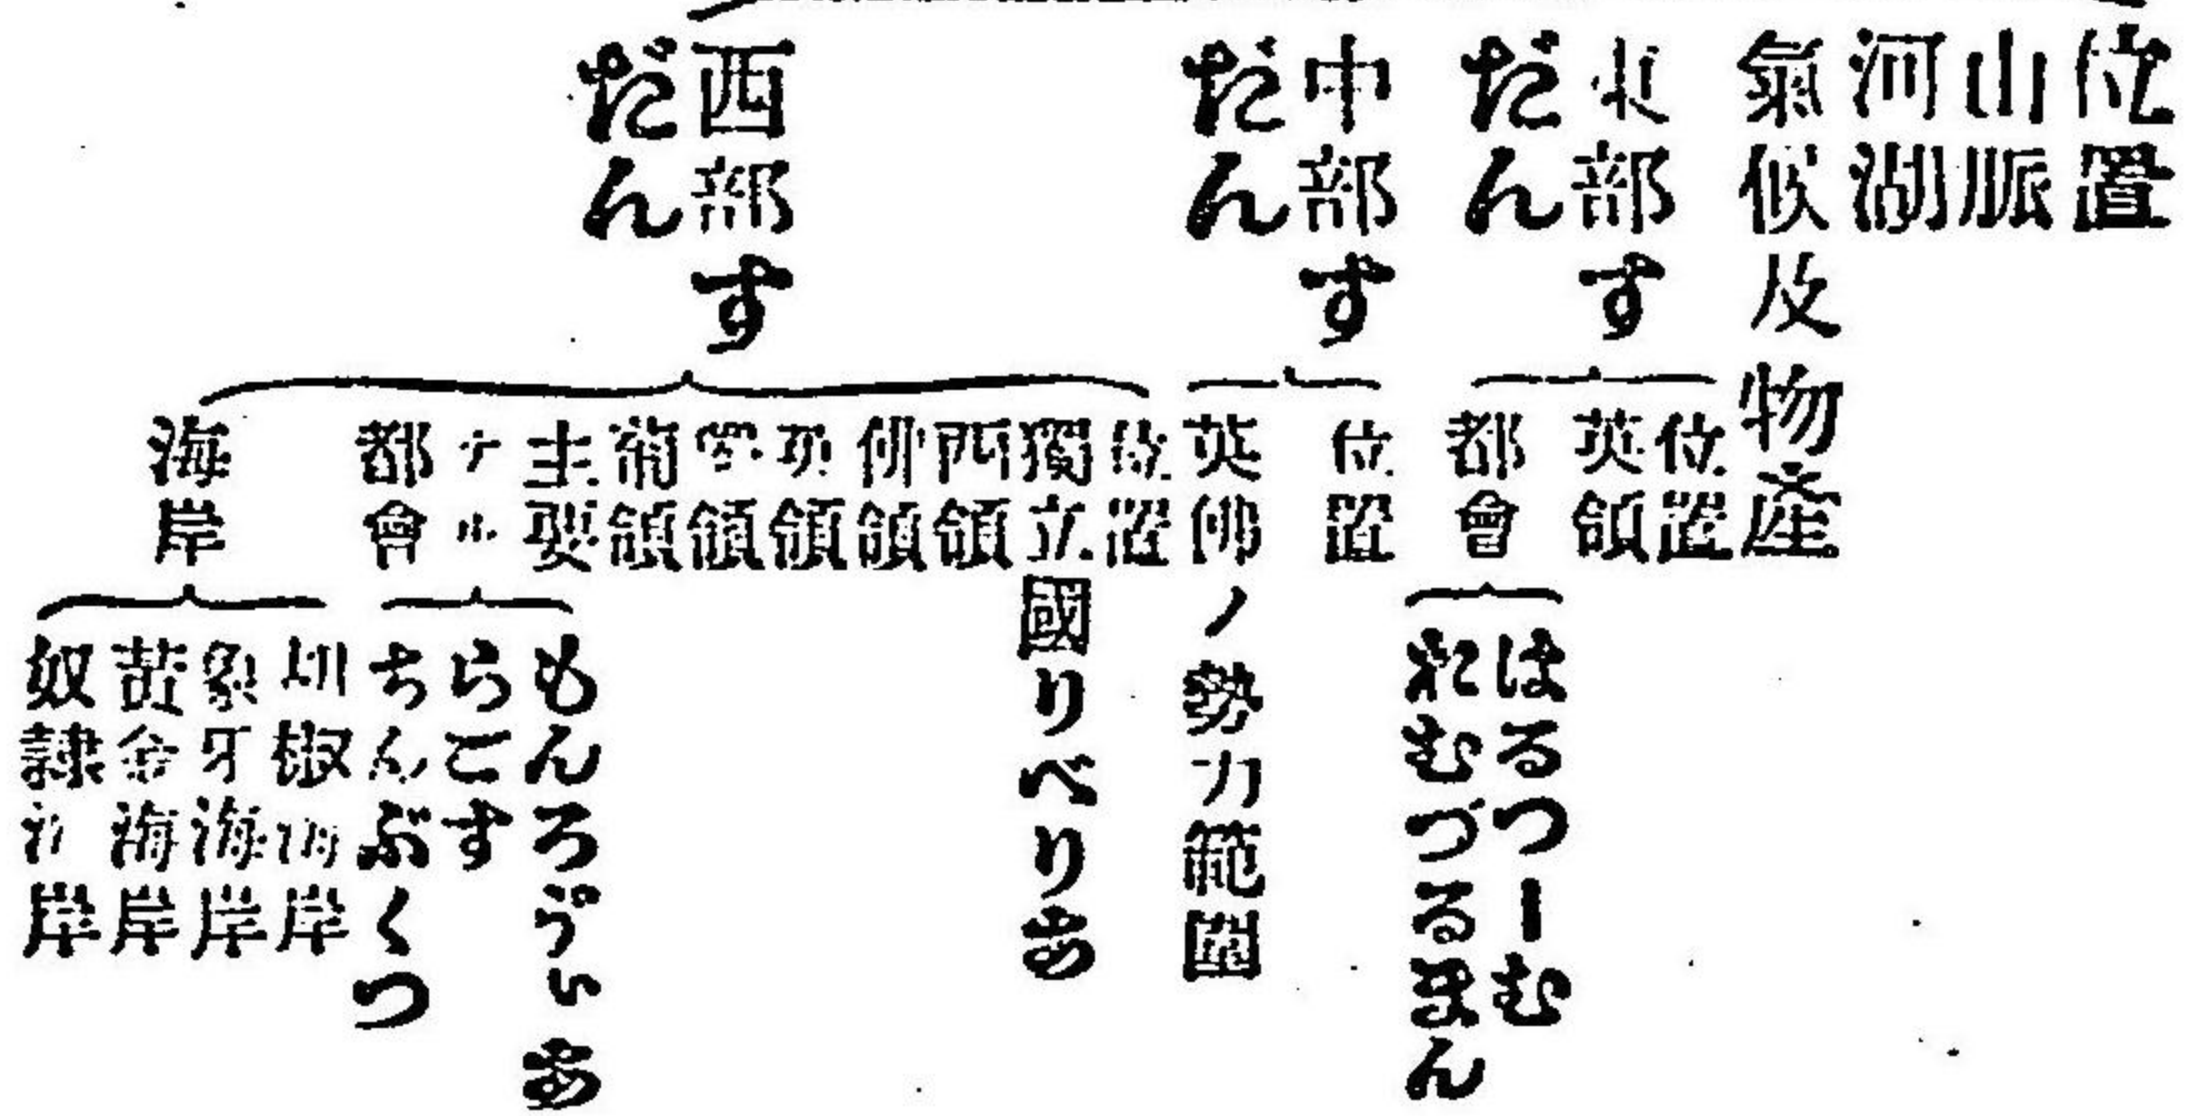 位置
山脈
河湖
氣候及物產
東部す
だん
位置
英領
都會
はるつーむ
おむづるまん
中部す
だん
位置
英佛ノ勢力範圍
西部す
だん
位置
獨立國りべりあ
西領
佛領
英領
領
葡領
主要
ナル
都會
もんろゔぃあ
らごす
ちんぶくつ
海岸
椒海岸
象牙海岸
黃金海岸
奴隸海岸